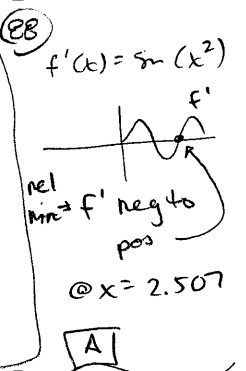 88
f'(x) = sin (x²)
f'
rel
min ⇒ f' neg to
pos
@ x = 2.507
A